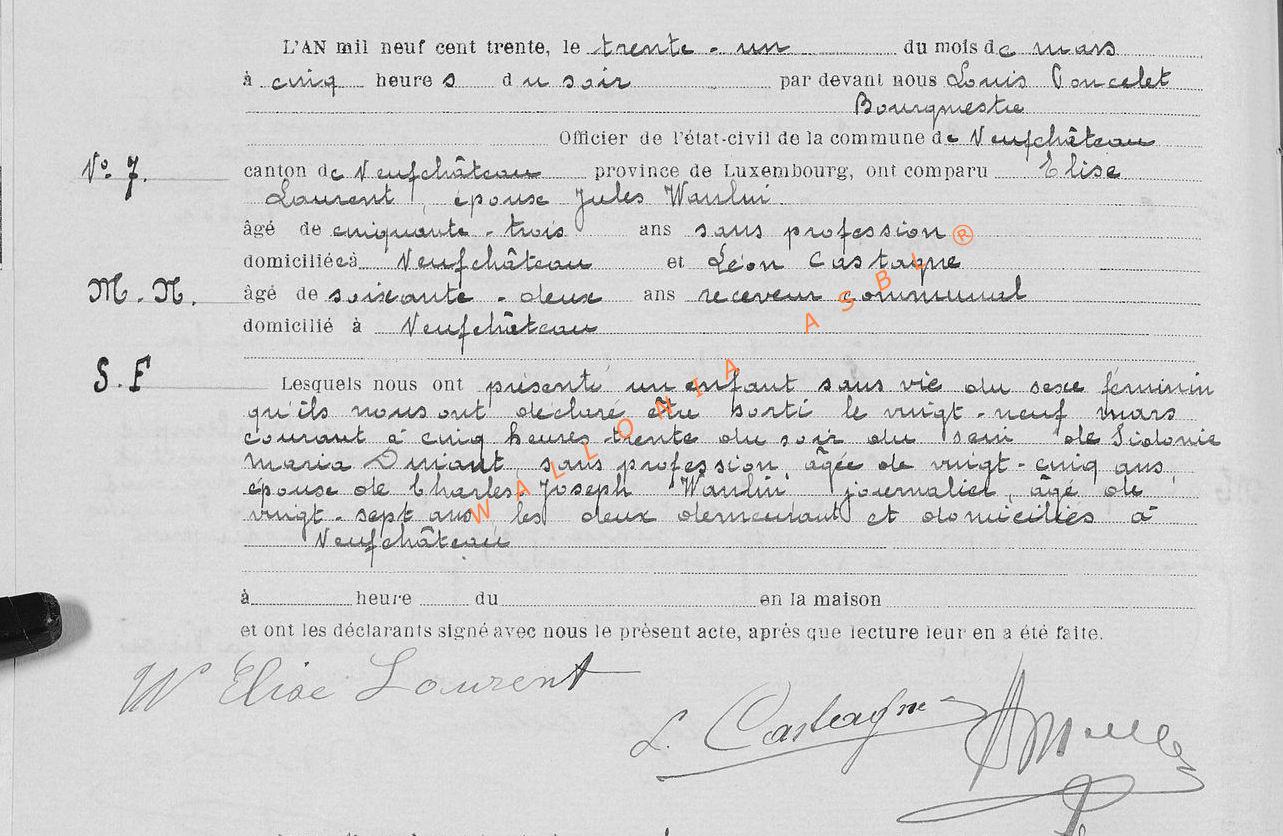 L'AN mil neuf cent trente, le trente-un du mois de mars
à cinq heures du soir par devant nous Louis Poncelet
Bourgmestre
Officier de l'état-civil de la commune de Neufchâteau
N° 7.
canton de Neufchâteau province de Luxembourg, ont comparu Elise
Laurent, épouse Jules Waulin
âgé de cinquante-trois ans sans profession
domiciliée à Neufchâteau et Léon Castagne
M.N.
âgé de soixante-deux ans receveur communal
domicilié à Neufchâteau
S.F
Lesquels nous ont présenté un enfant sans vie du sexe féminin
qu'ils nous ont déclaré être sorti le vingt-neuf mars
courant à cinq heures trente du soir du sein de Sidonie
Maria sans profession, âgée de vingt-cinq ans
épouse de Charles Joseph Waulin journalier, âgé de
vingt-sept ans, les deux demeurant et domiciliés à
Neufchâteau
à heure du en la maison
et ont les déclarants signé avec nous le présent acte, après que lecture leur en a été faite.
W Elise Laurent
L. Castagne
WALLONIA ASBL ®